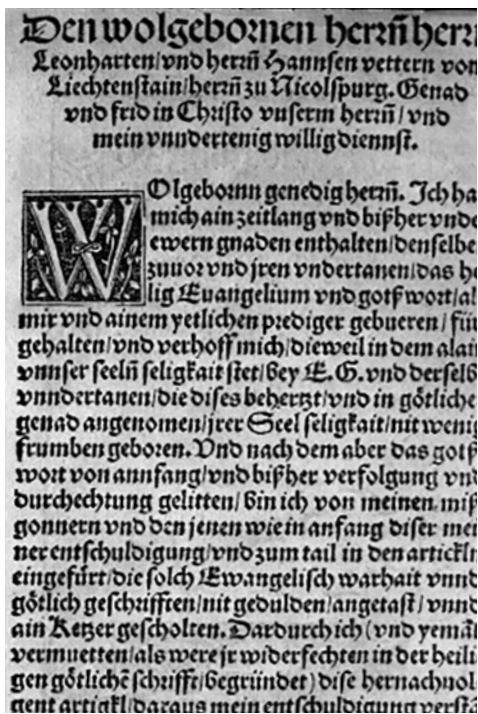 Den wolgebornen herrn̄ herr
Leonharten/vnd herrn̄ Hannsen vettern von
Liechtenstain/herrn̄ zu Nicolspurg. Genad
vnd frid in Christo vnserm herrn̄/vnd
mein vnndertenig willig diennst.
WOlgebornn genedig herrn̄. Ich ha
mich ain zeitlang vnd bißher vnde
ewern gnaden enthalten/denselbe
zuuor vnd jren vndertanen/das he
lig Euangelium vnd gotß wort/al
mir vnd ainem yetlichen prediger gebueren/für
gehalten/vnd verhoff mich/dieweil in dem alain
vnnser seeln̄ seligkait stet/bey E.G. vnd derselb
vnndertanen/die dises behertzt/vnd in götliche
genad angenomen/jrer Seel seligkait/nit wenig
frumben geboren. Vnd nach dem aber das gotß
wort von annfang/vnd bißher verfolgung vnd
durchechtung gelitten/bin ich von meinen miß
gonnern vnd den jenen wie in anfang diser mei
ner entschuldigung/vnd zum tail in den artickln
eingefürt/die solch Ewangelisch warhait vnnd
götlich geschrifften/nit gedulden/angetast/vnnd
ain Ketzer gescholten. Dardurch ich (vnd yemāt
vermuetten/als were jr widerfechten in der heili
gen götlichē schrifft/begründet) dise hernachuol
gent artigkl/daraus mein entschuldigung verstā